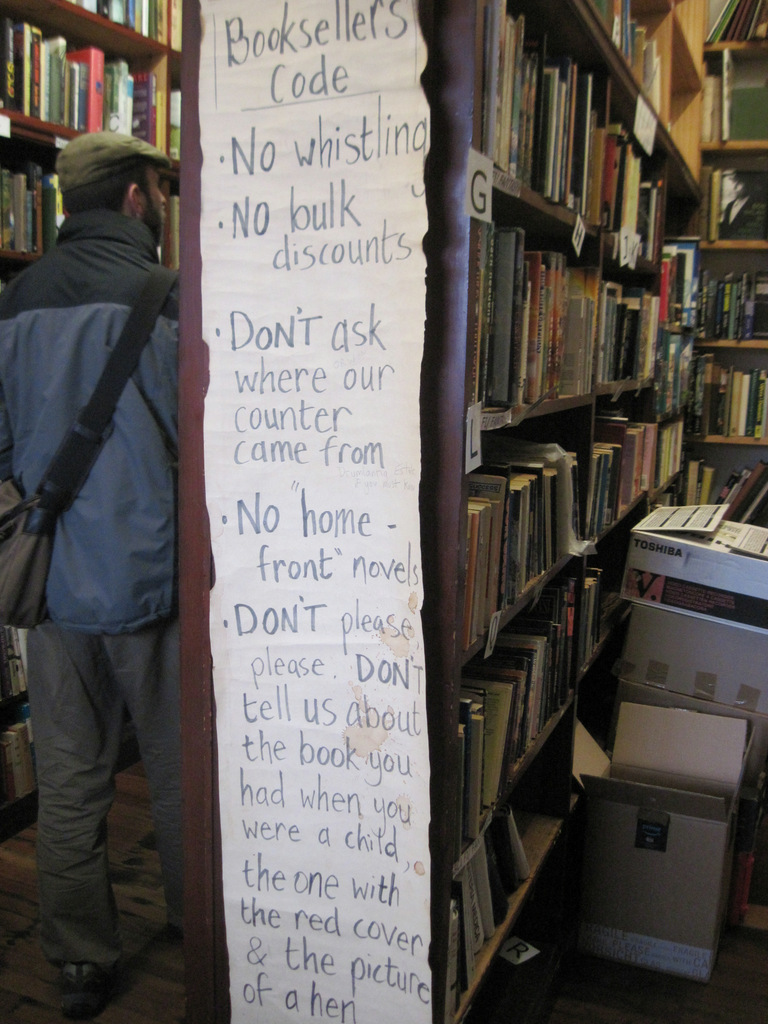 Booksellers
Code
·No whistling
·NO bulk
discounts
·DON'T ask
where our
counter
came from
·No "home-
front" novels
·DON'T please,
please. DON'T
tell us about
the book you
had when you
were a child,
the one with
the red cover
& the picture
of a hen
G
L
R
TOSHIBA